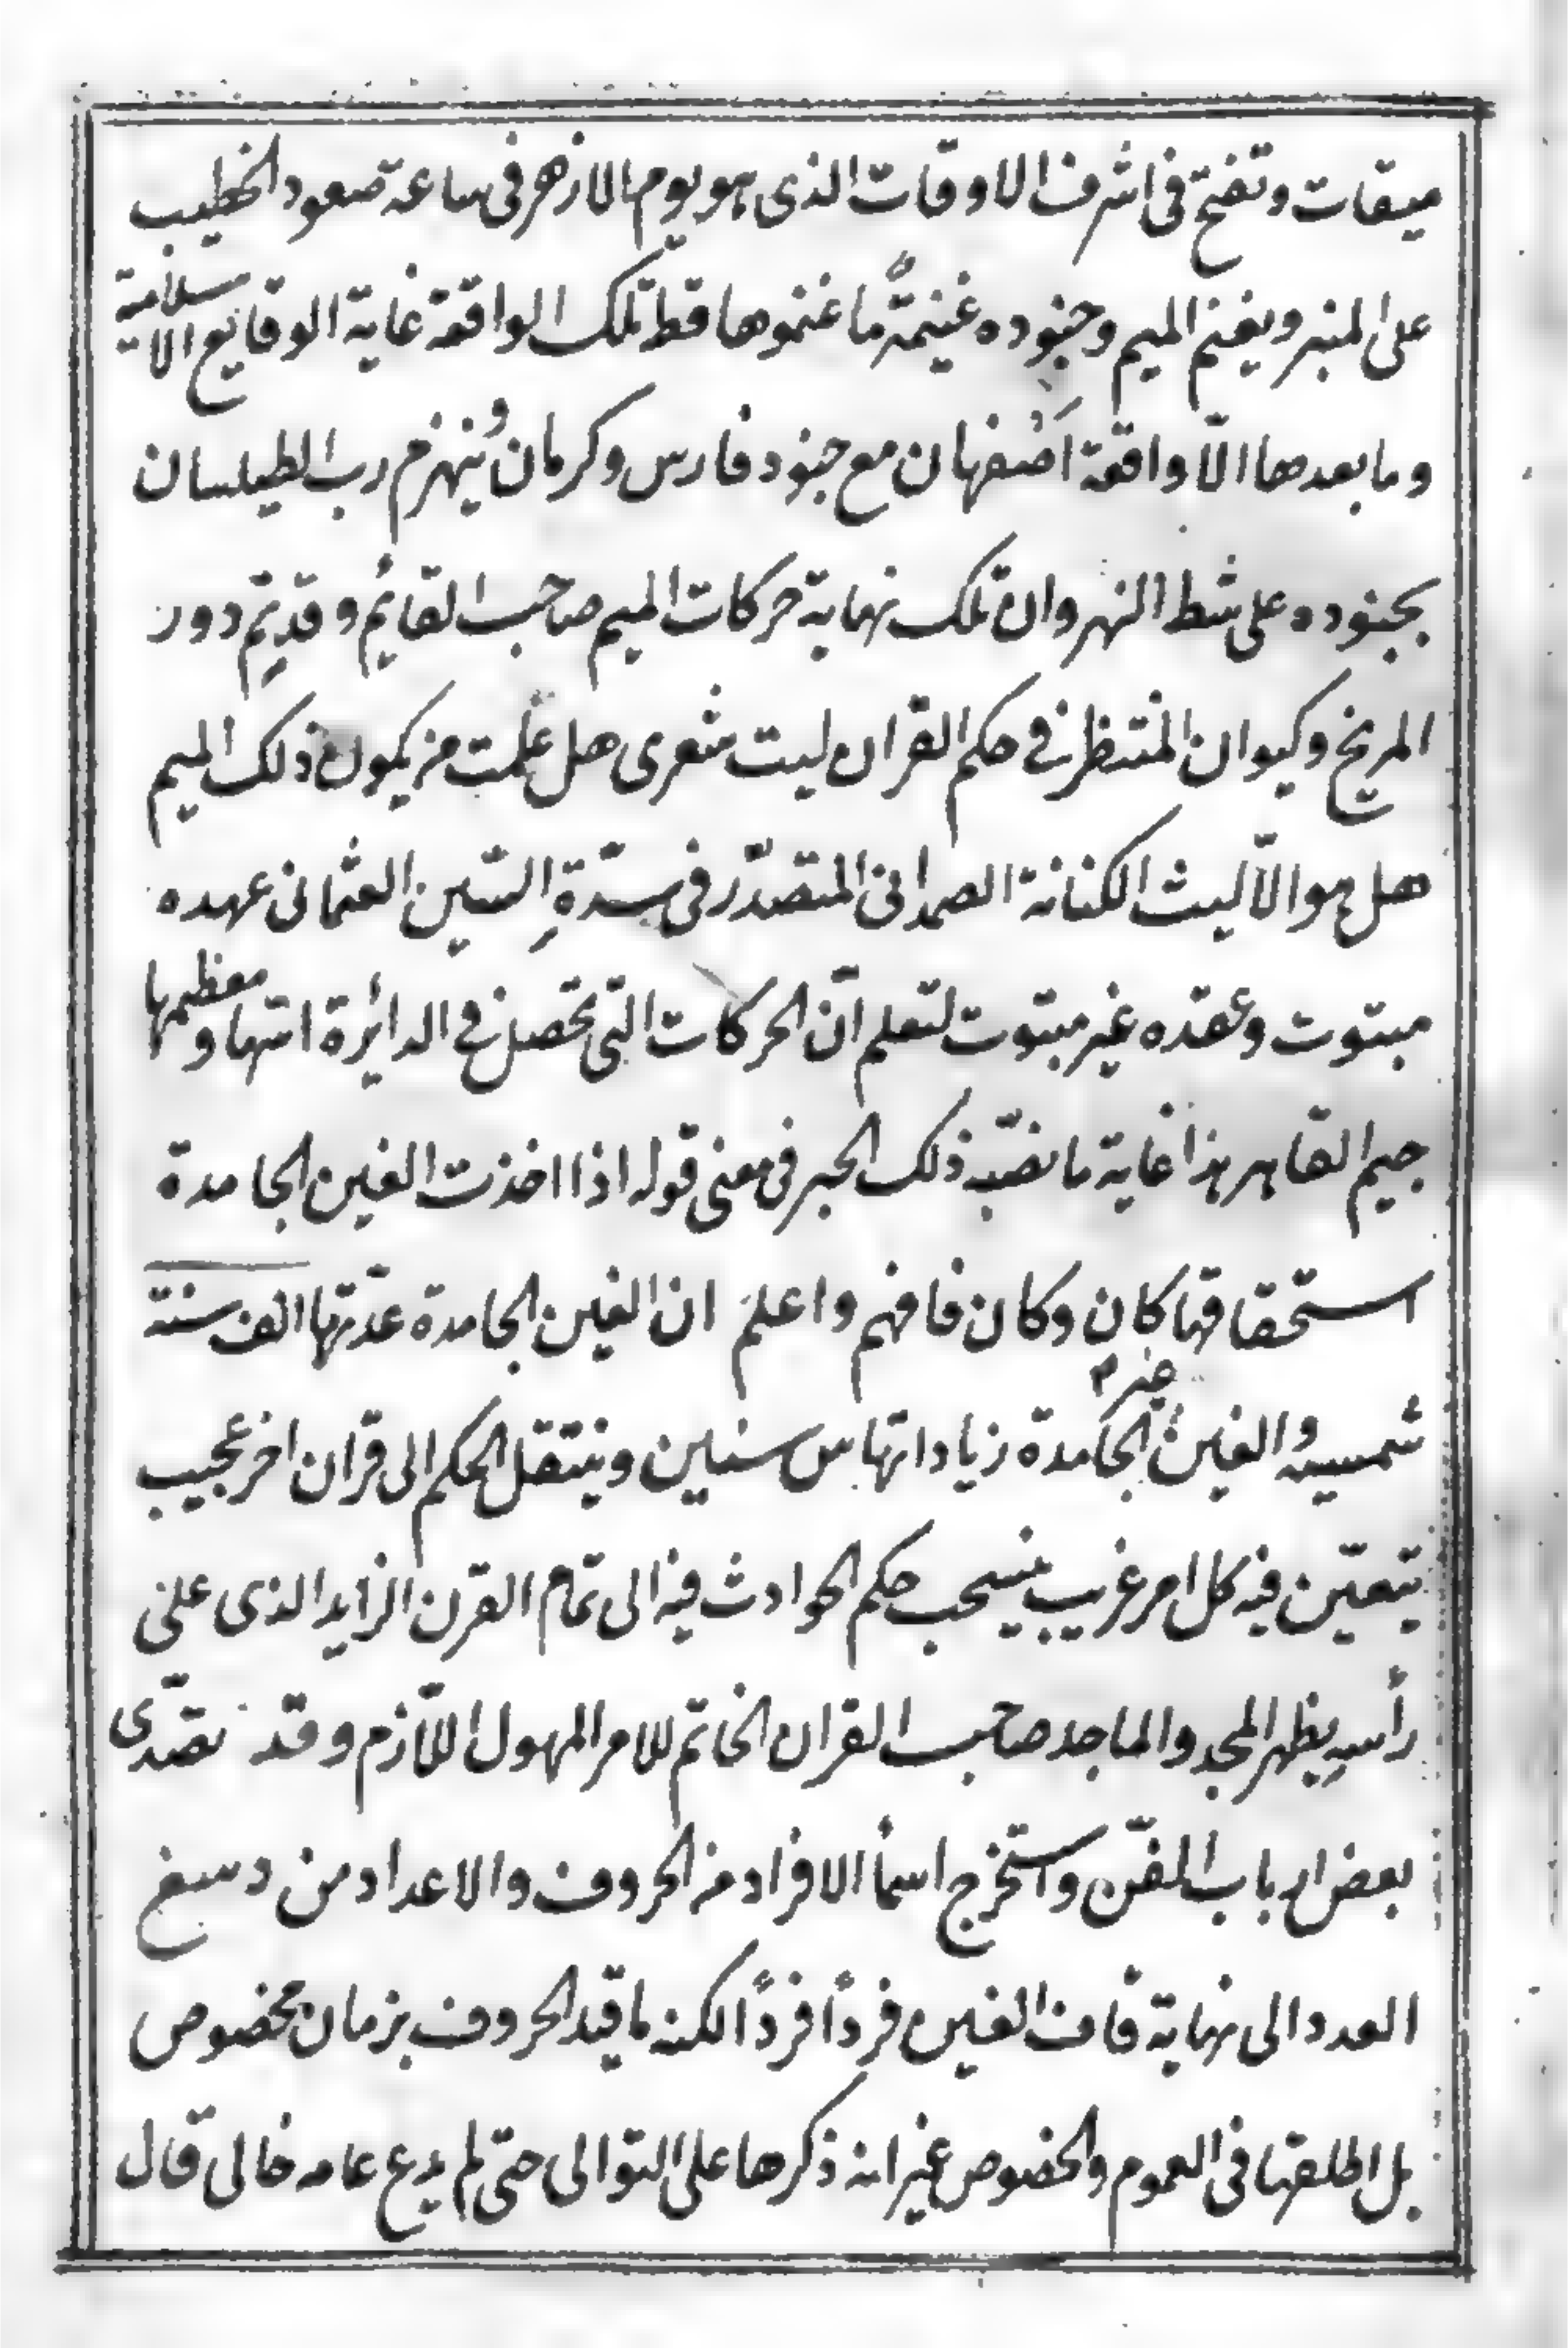 ميقات وتفتح فى اشرف الاوقات الذى هو يوم الازهر فى ساعة صعود الخطيب
على المنبر ويغنم الميم وجنوده غنيمةً ما غنموها قط تلك الواقعة غاية الوقايع الاسلامية
وما بعدها الّا واقعة اصفهان مع جنود فارس وكرمان وينهزم رب الطيلسان
بجنوده على شط النهروان تلك نهاية حركات الميم صاحب القايم وقد يتم دور
المريخ وكيوان المنتظر فى حكم القران ليت شعرى هل علمت من يكون ذلك الميم
هل هو الّا ليث الكنانة الصمدانى المتصدّر فى سدّةِ السّين العثمانى عهده
مبتوت وعقده غير مبتوت لتعلم انّ الحركات التى تحصل فى الدائرة انتهاء ومعظمها
جيم القاهر هذا غاية ما نصّبه ذلك الحبر فى معنى قوله اذا اخذت الغين الجامدة
استحقاقها كان وكان فافهم واعلم ان الغين الجامدة عدّتها الف سنة
شمسيه والغين غير الجامدة زياداتها س سنين وينتقل الحكم الى قران اخر عجيب
يتعيّن فيه كل امر غريب ينسحب حكم الحوادث فيه الى تمام القرن الزايد الذى على
رأسهِ يظهر المجد والماجد صاحب القران الخاتم للامر المهول اللّازم وقد تصدّى
بعض ارباب الفنّ واستخرج اسمأ الافراد من الحروف والاعداد من د سبغ
العدد الى نهاية قاف الغين فرداً فرداً لكنه ما قيد الحروف بزمان مخصوص
بل اطلقها فى العموم والخصوص غير انه ذكرها على التوالى حتى لم يدع عامه خالى قال